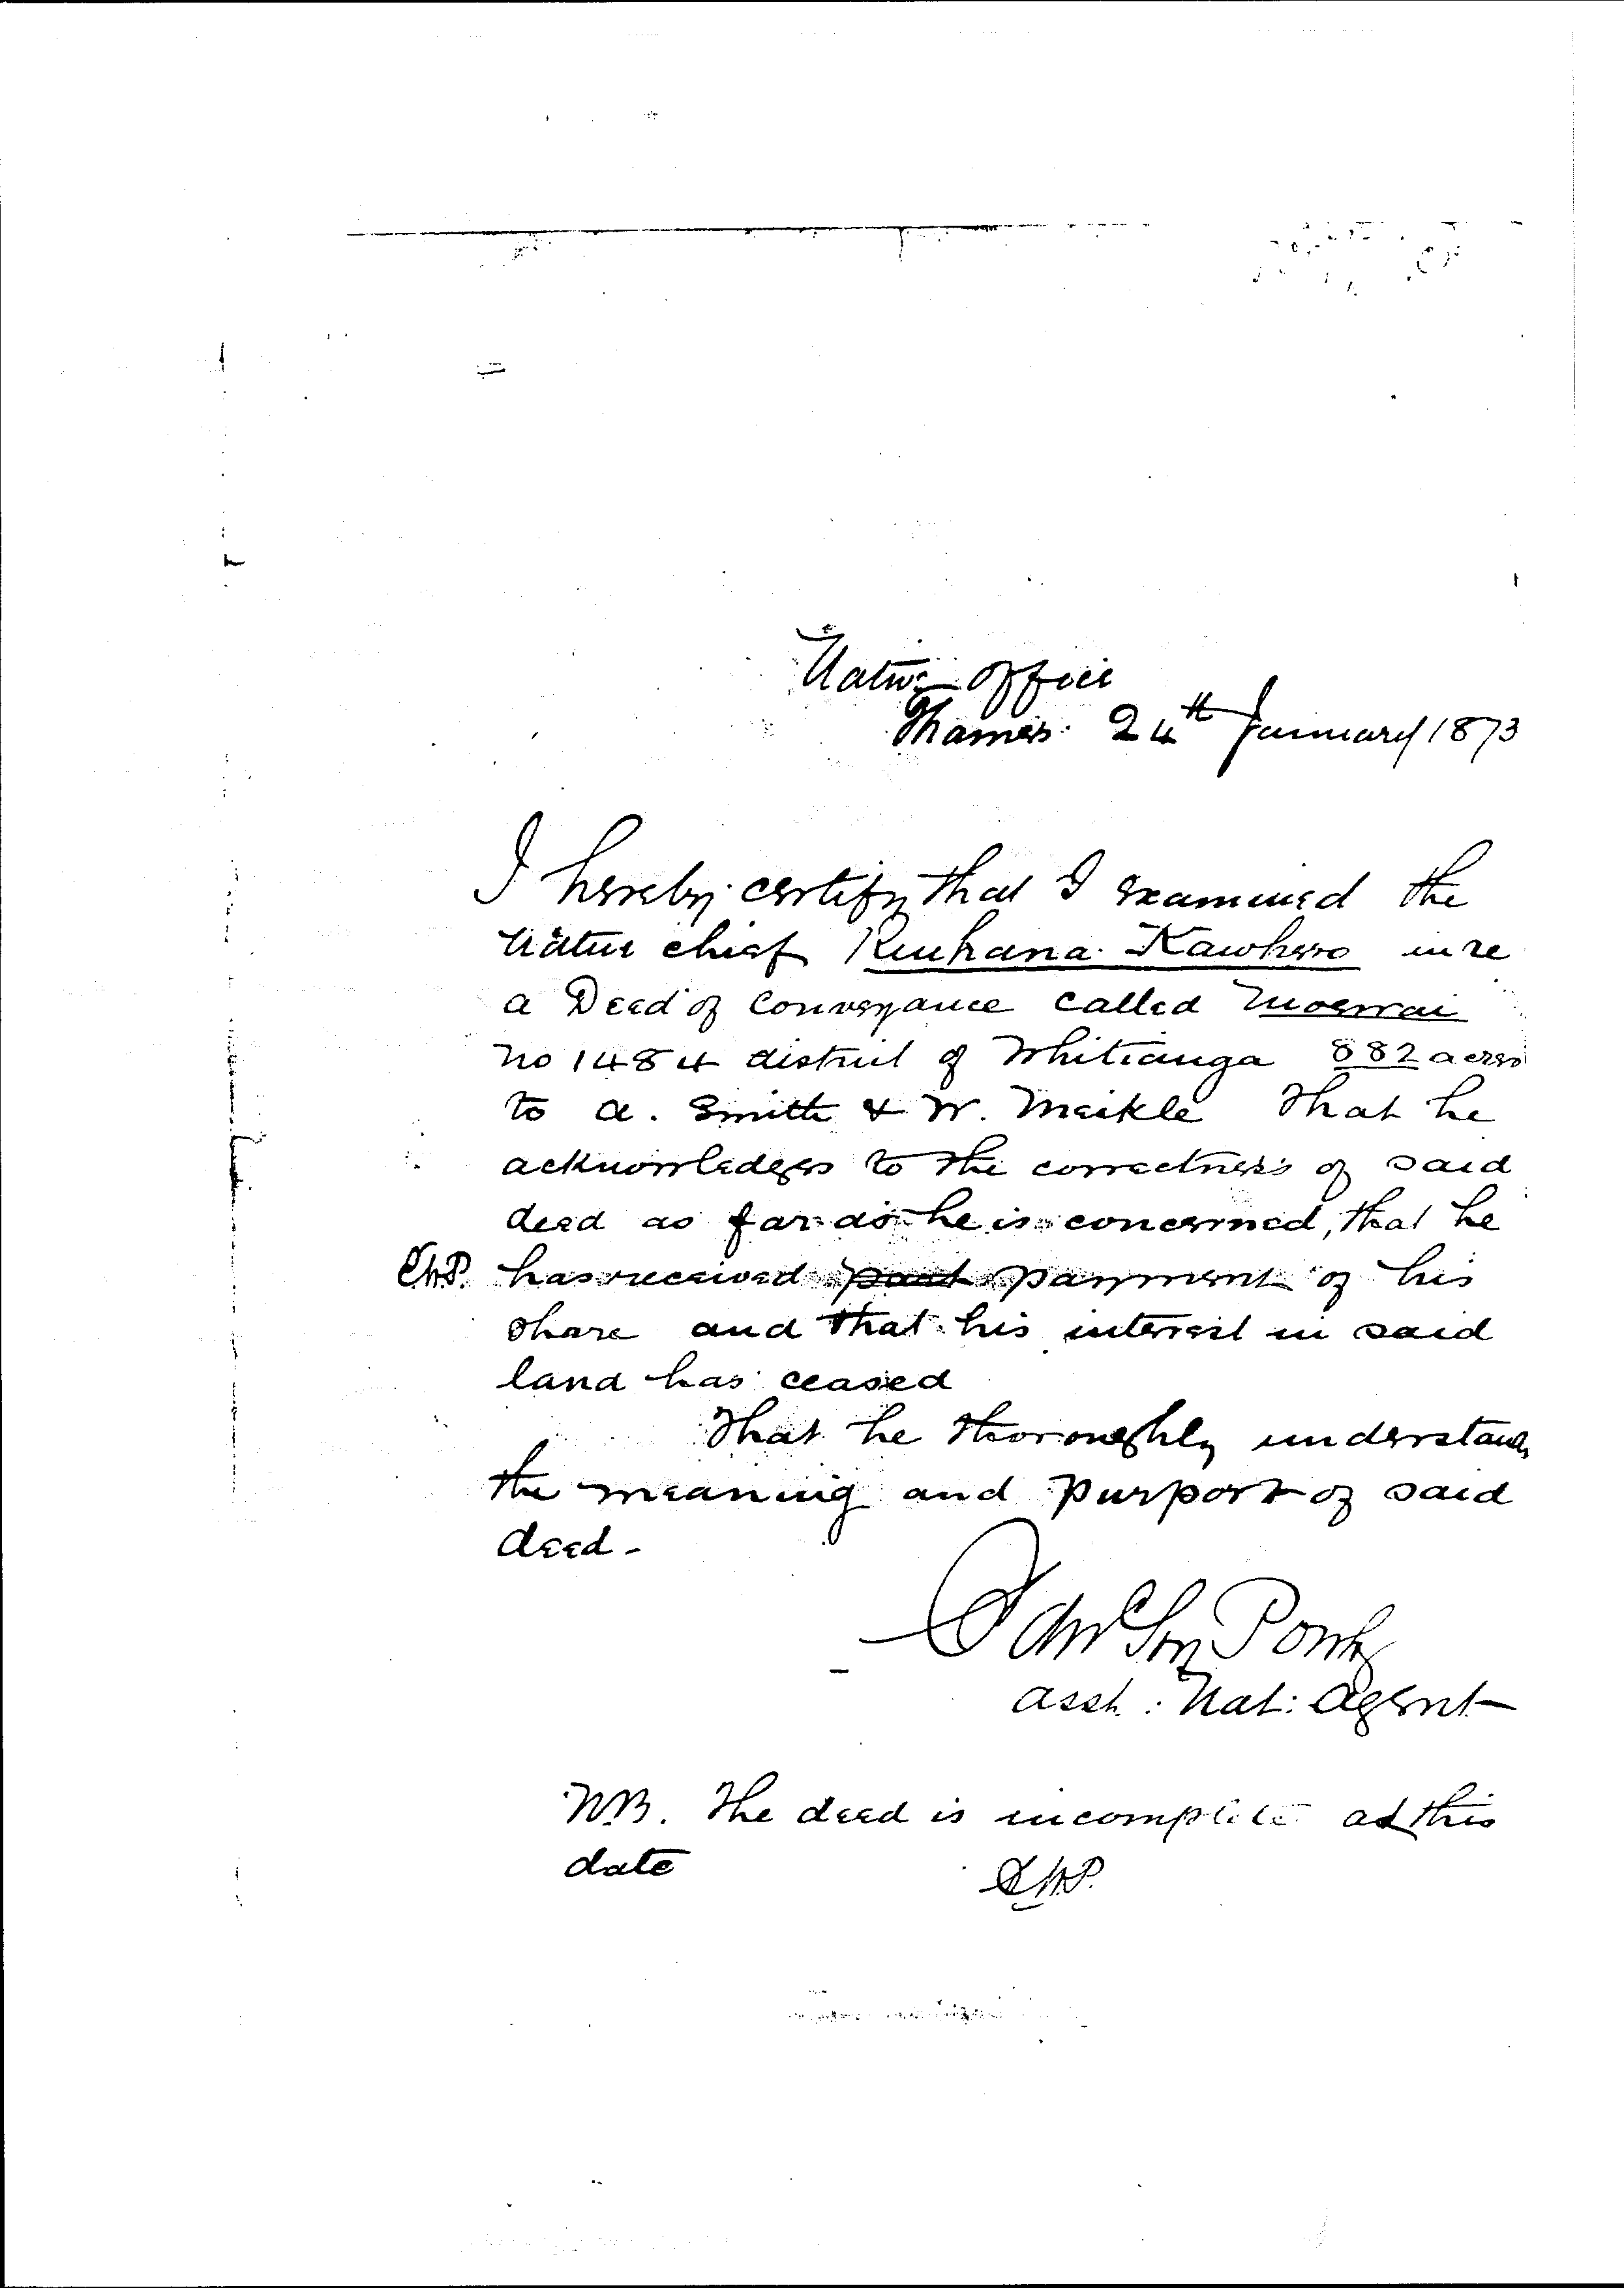 Native Office
Thames 24th January 1873
I hereby certify that I examined the
Native chief Riuhana Kawhero in re
a Deed of Conveyance called Moewai
no 1484 district of Whitianga 882 acres
to A. Smith & W. Meikle That he
acknowledges to the correctness of said
deed as far as he is concerned, that he
has received part payment of his
share and that his interest in said
land has ceased
That he thoroughly understands
the meaning and purport of said
deed -
Asst: Nat: Agent
NB. The deed is incomplete at this
date